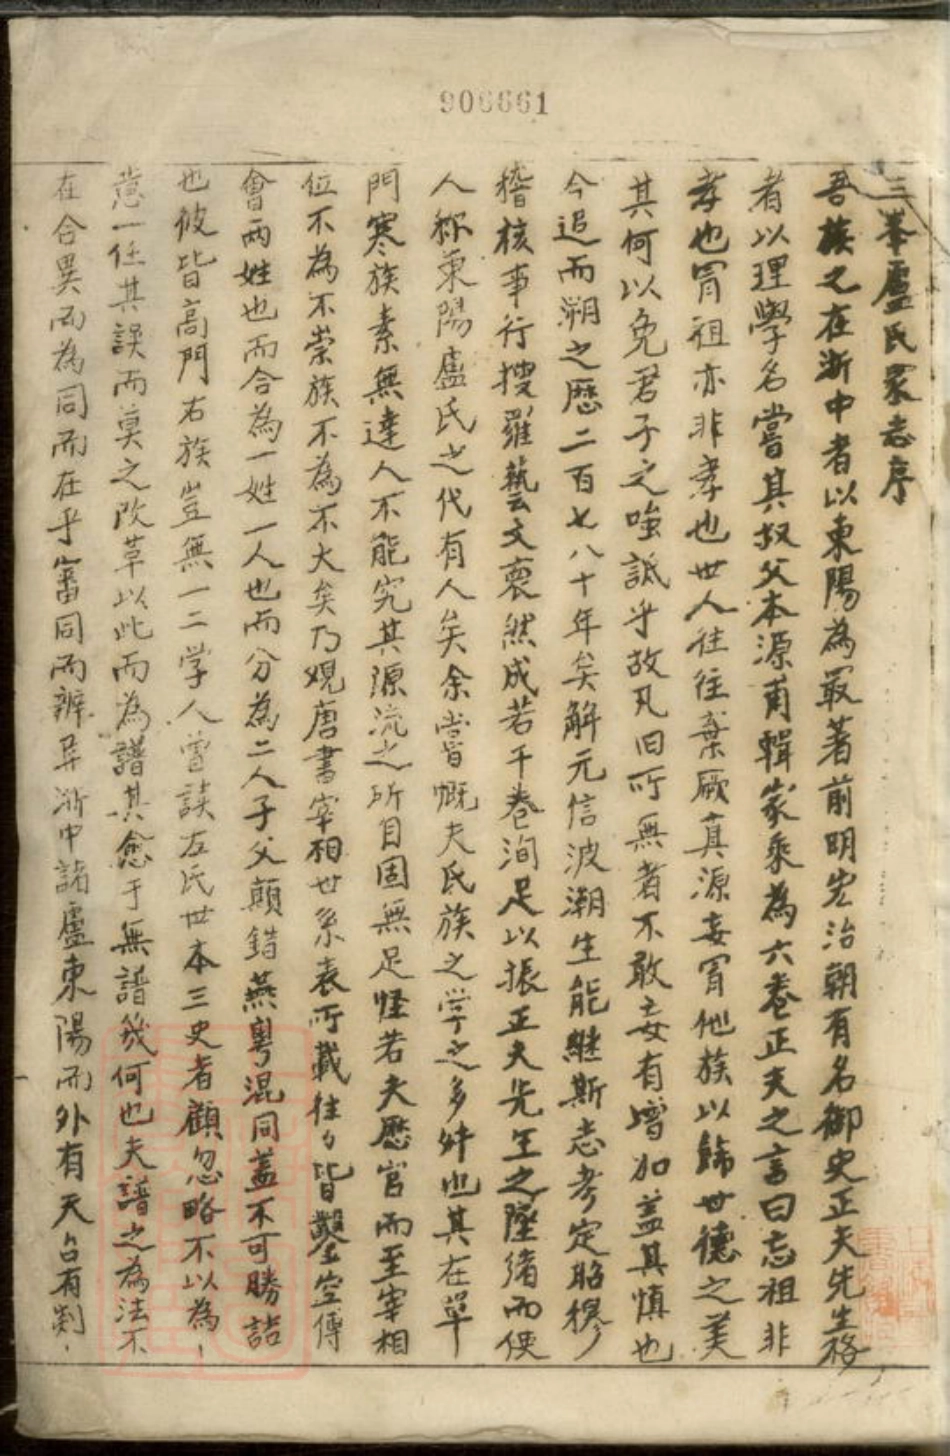 906661
三峯盧氏家志序
吾族之在浙中者以東陽為最著前明宏治朝有名御史正夫先生格
者以理學名嘗其叔父本源甫輯家乘為六卷正夫之言曰忘祖非
孝也冐祖亦非孝也世人往往棄厥真源妄冐他族以歸世德之美
其何以免君子之嗤詆乎故凡旧所無者不敢妄有增加盖其慎也
今追而溯之歷二百七八十年矣解元信波潮生能継斯志考定昭穆
稽核事行搜羅藝文裒然成若干卷洵足以振正夫先生之墜緒而使
人称東陽盧氏之代有人矣余嘗慨夫氏族之学之多舛也其在單
門寒族素無達人不能究其源流之所自固無足怪若夫歷官而至宰相
位不為不崇族不為不大矣乃覌唐書宰相世系表所載往々皆鑿空傅
會兩姓也而合為一姓一人也而分為二人子父顛錯燕粵混同盖不可勝詰
也彼皆高門右族豈無一二学人嘗读左氏世本三史者顧忽略不以為
意一任其誤而莫之改革以此而為譜其愈于無譜幾何也夫譜之為法不
在合異而為同而在乎審同而辨异浙中諸盧東陽而外有天台有剡